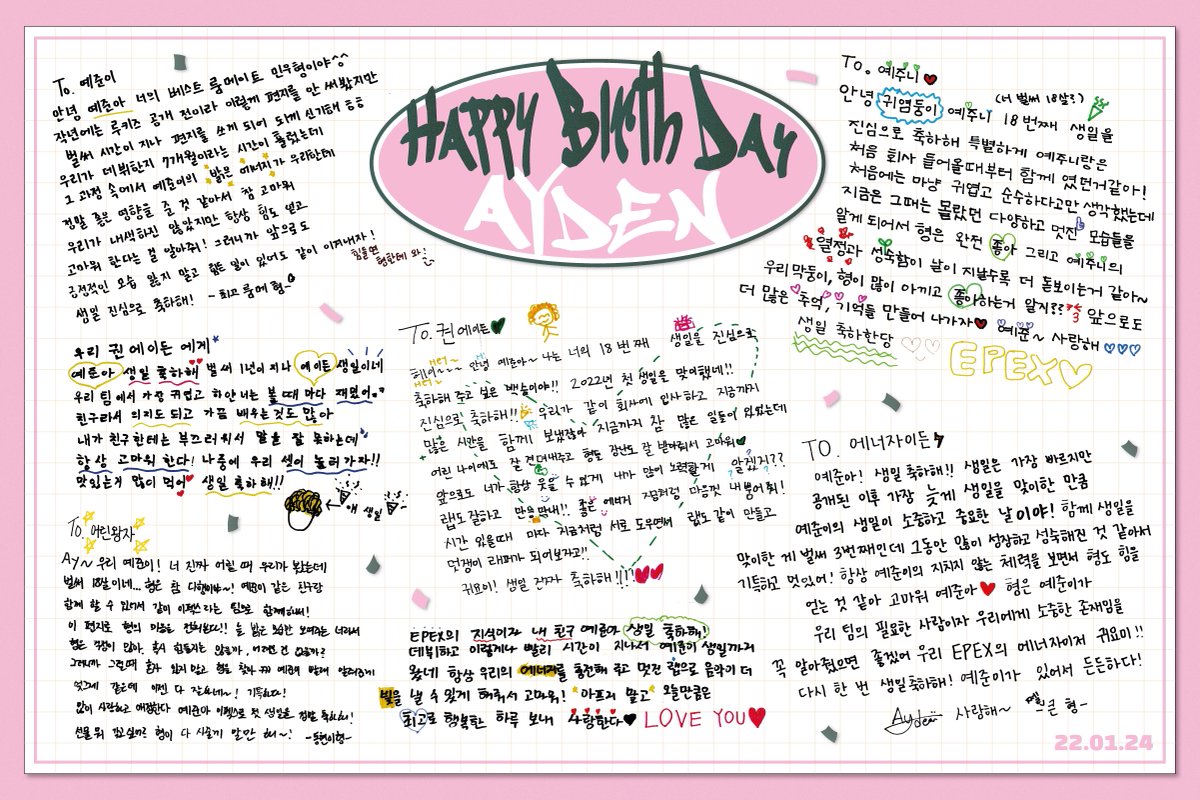 HAPPY BIRth DAy
AYDEN
To. 예준이
안녕 예준아 너의 베스트 룸메이트 민우형이야^^
작년에는 루키즈 공개 전이라 이렇게 편지를 안 써봤지만
벌써 시간이 지나 편지를 쓰게 되어 되게 신기해 ㅎㅎ
우리가 데뷔한지 7개월이라는 시간이 흘렀는데
그 과정 속에서 예준이의 밝은 에너지가 우리한테
정말 좋은 영향을 준 것 같아서 참 고마워
우리가 내색하진 않았지만 항상 힘도 얻고
고마워 한다는 걸 알아줘! 그러니까 앞으로도
긍정적인 모습 잃지 말고 힘든 일이 있어도 같이 이겨내자!
힘들면 형한테 와!
생일 진심으로 축하해! -최고 룸메 형-
To. 예주니
안녕 귀염둥이 예주니 18번째 생일을
(너 벌써 18살?)
진심으로 축하해 특별하게 예주니랑은
처음 회사 들어올때부터 함께 였던거같아!
처음에는 마냥 귀엽고 순수하다고만 생각했는데
지금은 그때는 몰랐던 다양하고 멋진 모습들을
알게 되어서 형은 완전 좋아 그리고 예주니의
열정과 성숙함이 날이 지날수록 더 돋보이는거 같아~
우리막둥이, 형이 많이 아끼고 좋아하는거 알지??
더 많은 추억, 기억들 만들어 나가자 앞으로도
생일 축하한당 예준~ 사랑해
EPEX
우리 권에이든에게
예준아 생일 축하해 벌써 1년이 지나 에이든 생일이네
우리 팀에서 가장 귀엽고 하얀너를 볼 때 마다 재밌어.
친구라서 의지도 되고 가끔 배우는것도 많아
내가 친구한테는 부끄러워서 말을 잘 못하는데
항상 고마워 한다! 나중에 우리 셋이 놀러가자!!
맛있는거 많이 먹어 생일 축하해!!
← 얘 생일
To. 권에이든
헤이~ 안녕 예준아~ 나는 너의 18번째 생일을 진심으로
축하해 주고 싶은 백승이야!! 2022년 첫 생일을 맞이했네!!
진심으로 축하해!! 우리가 같이 회사에 입사하고 지금까지
많은 시간을 함께 보냈잖아 지금까지 참 많은 일들이 있었는데
어린 나이에도 잘 견뎌내주고 형들 장난도 잘 받아줘서 고마워
앞으로도 너가 항상 웃을 수 있게 내가 많이 노력할게 알겠지??
랩도 잘하고 만능막내!! 좋은 에너지 지금처럼 마음껏 내뿜어줘!
시간 있을때 마다 지금처럼 서로 도우면서 랩도 같이 만들고
멋쟁이 래퍼가 되어보자고!!
귀요미! 생일 진짜 축하해!!!
To. 어린왕자
Ay~ 우리 예준이! 너 진짜 어릴 때 우리가 봤는데
벌써 18살이네... 형은 참 다행이야~! 예준이 같은 친구랑
함께 할 수 있어서 같이 이펙스라는 팀으로 함께해서!
이 편지로 형의 마음을 전해본다!! 늘 밝은 모습만 보여주는 너라서
형은 걱정이 많아. 혹시 힘들지는 않을까, 어려운 건 없을까?
많이 사랑하고 애정한다 예준아 이펙스로 첫 생일을 정말 축하해!
선물 뭐 갖고싶어? 형이 다 사줄게 말만 해~! -동현이형-
EPEX의 지식이자 내 친구 예준아 생일 축하해!
데뷔하고 이렇게나 빨리 시간이 지나서 예준이 생일까지
왔네 항상 우리의 에너자를 충전해 주고 멋진 랩으로 음악이 더
빛을 낼 수 있게 해줘서 고마워! 아프지 말고 오늘만큼은
최고로 행복한 하루 보내 사랑한다 LOVE YOU
TO. 에너자이든
예준아! 생일 축하해!! 생일은 가장 빠르지만
공개된 이후 가장 늦게 생일을 맞이한 만큼
예준이의 생일이 소중하고 중요한 날이야! 함께 생일을
맞이한 게 벌써 3번째인데 그동안 많이 성장하고 성숙해진 것 같아서
기특하고 멋있어! 항상 예준이의 지치지 않는 체력을 보면서 형도 힘을
얻는 것 같아 고마워 예준아 형은 예준이가
우리 팀의 필요한 사람이자 우리에게 소중한 존재임을
꼭 알아줬으면 좋겠어 우리 EPEX의 에너자이저 귀요미!!
다시 한 번 생일축하해! 예준이가 있어서 든든하다!
Ayden 사랑해~ -큰 형-
22.01.24